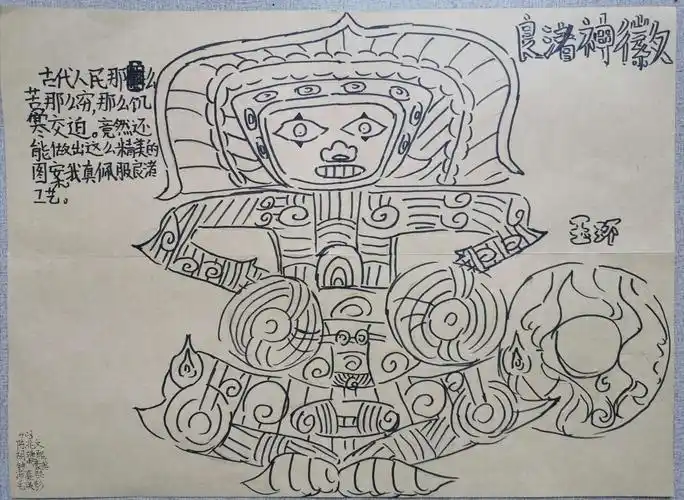 良渚神徽
古代人民那么
苦那么穷,那么饥
寒交迫。竟然还
能做出这么精美的
图案我真佩服良渚
工艺。
玉环